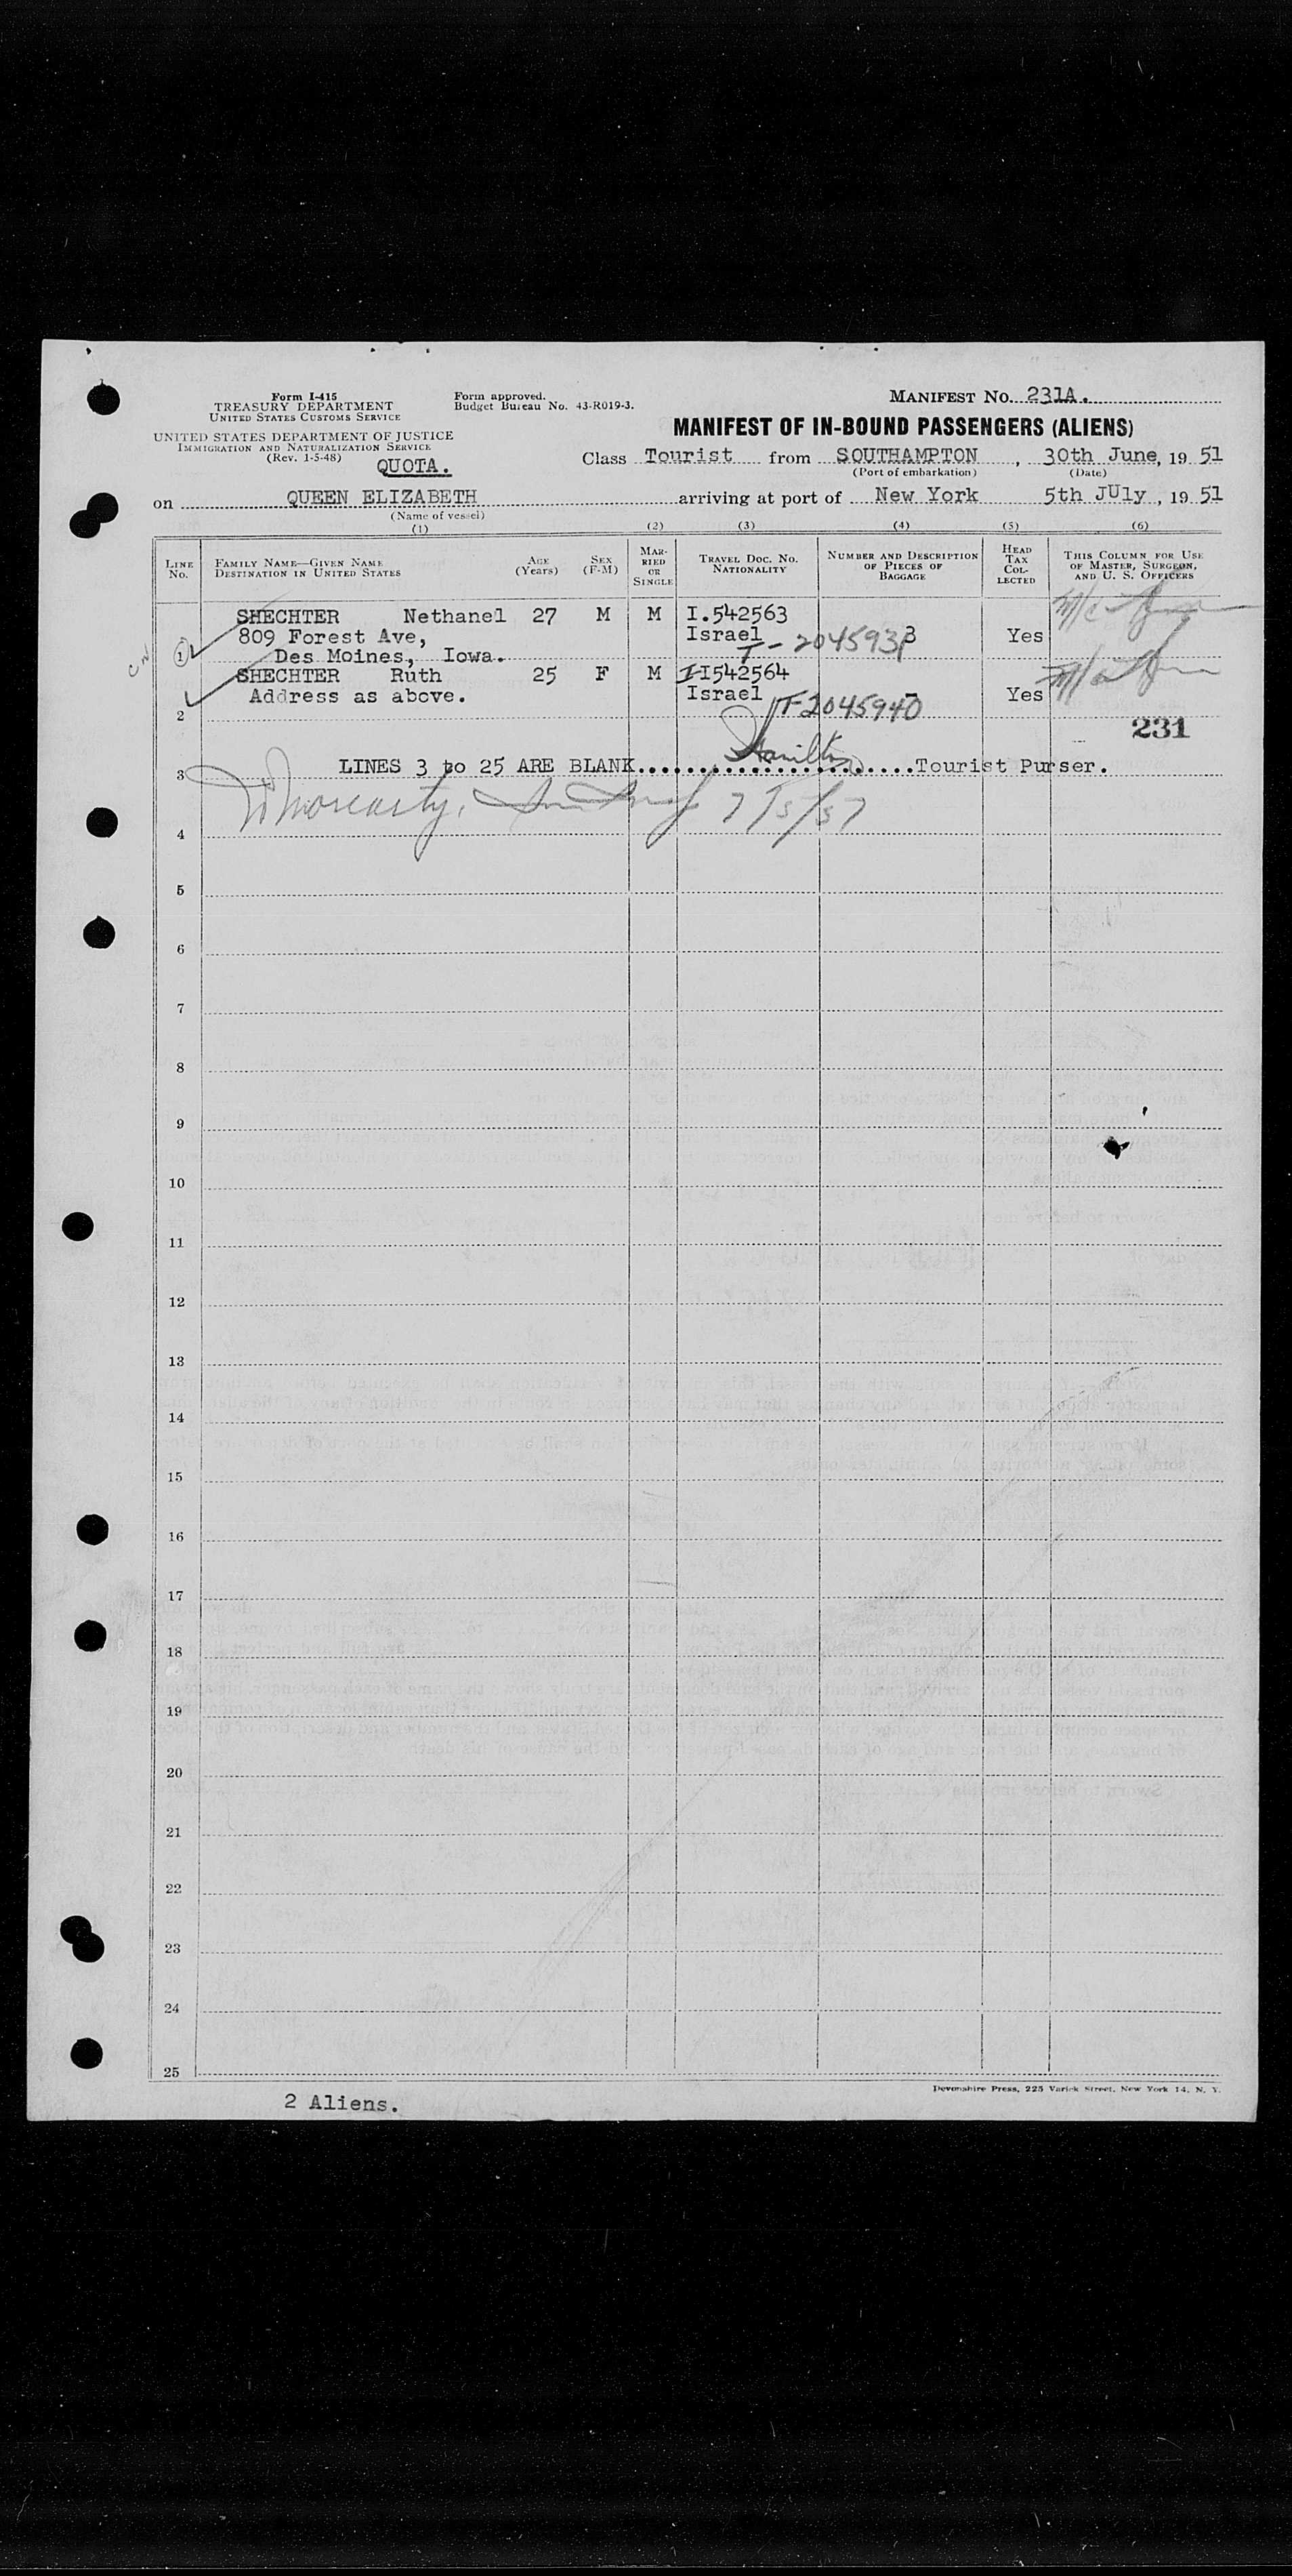 Form I-415
TREASURY DEPARTMENT
UNITED STATES CUSTOMS SERVICE
UNITED STATES DEPARTMENT OF JUSTICE
IMMIGRATION AND NATURALIZATION SERVICE
(Rev. 1-5-48)
QUOTA.
Form approved.
Budget Bureau No. 43-R019-3.
MANIFEST NO. 231A.
MANIFEST OF IN-BOUND PASSENGERS (ALIENS)
Class Tourist from SOUTHAMPTON, 30th June, 19 51
(Port of embarkation) (Date)
on QUEEN ELIZABETH arriving at port of New York 5th JUly, 19 51
(Name of vessel)
(1) (2) (3) (4) (5) (6)
LINE NO.
FAMILY NAME—GIVEN NAME
DESTINATION IN UNITED STATES
AGE (Years)
SEX (F-M)
MARRIED OR SINGLE
TRAVEL DOC. NO. NATIONALITY
NUMBER AND DESCRIPTION OF PIECES OF BAGGAGE
HEAD TAX COLLECTED
THIS COLUMN FOR USE OF MASTER, SURGEON, AND U. S. OFFICERS
SHECHTER Nethanel 27 M M I.542563
809 Forest Ave, Israel 3 Yes
1 Des Moines, Iowa. T-2045938
SHECHTER Ruth 25 F M I542564
Address as above. Israel - Yes
2 T-2045940
231
Hamilton
3 LINES 3 to 25 ARE BLANK. Tourist Purser.
Moriarty,
4
5
6
7
8
9
10
11
12
13
14
15
16
17
18
19
20
21
22
23
24
25
2 Aliens.
Devonshire Press, 225 Varick Street, New York 14, N. Y.